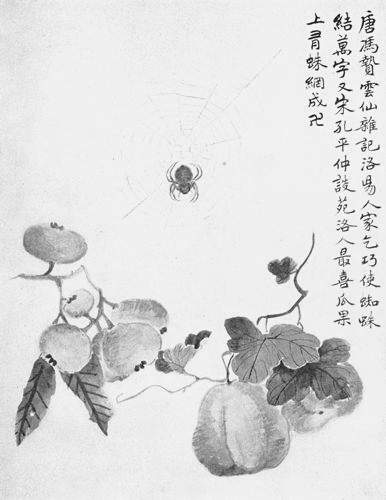 唐馮贄雲仙雜記洛陽人家乞巧使蜘蛛
結萬字又宋孔平仲談苑洛人最喜瓜果
上有蛛網成卍